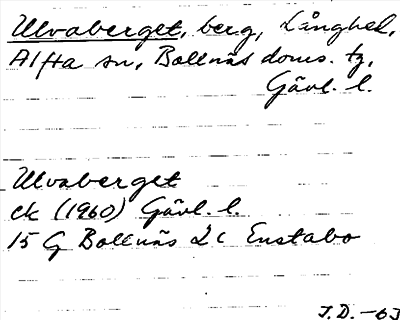 Ulvaberget, berg, Långhed,
Alfta sn, Bollnäs doms. tg,
Gävl. l.
Ulvaberget
ek (1960) Gävl. l.
15 G Bollnäs 2 c Enstabo
J.D. -63